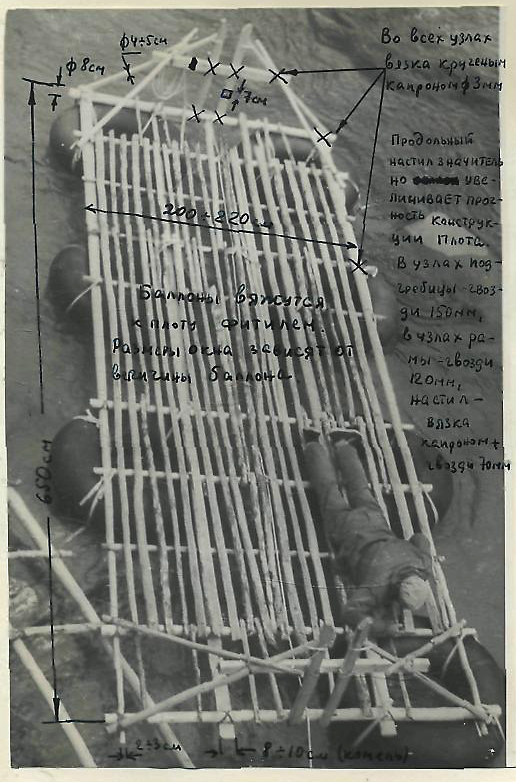 ф4÷5см
Во всех узлах
вязка крученым
капроном ф3мм
ф8см
7см
Продольный
настил значитель
но уве-
личивает проч-
ность конструк-
ции плота.
200÷220см
В узлах под-
гребицы-гвоз-
ди 150мм,
в узлах ра-
мы-гвозди
120мм,
настил-
вязка
капроном+
гвозди 70мм
Баллоны вяжутся
к плоту фитилем.
Размеры окна зависят от
величины баллона.
650см
2÷3см
8÷10см (комель)